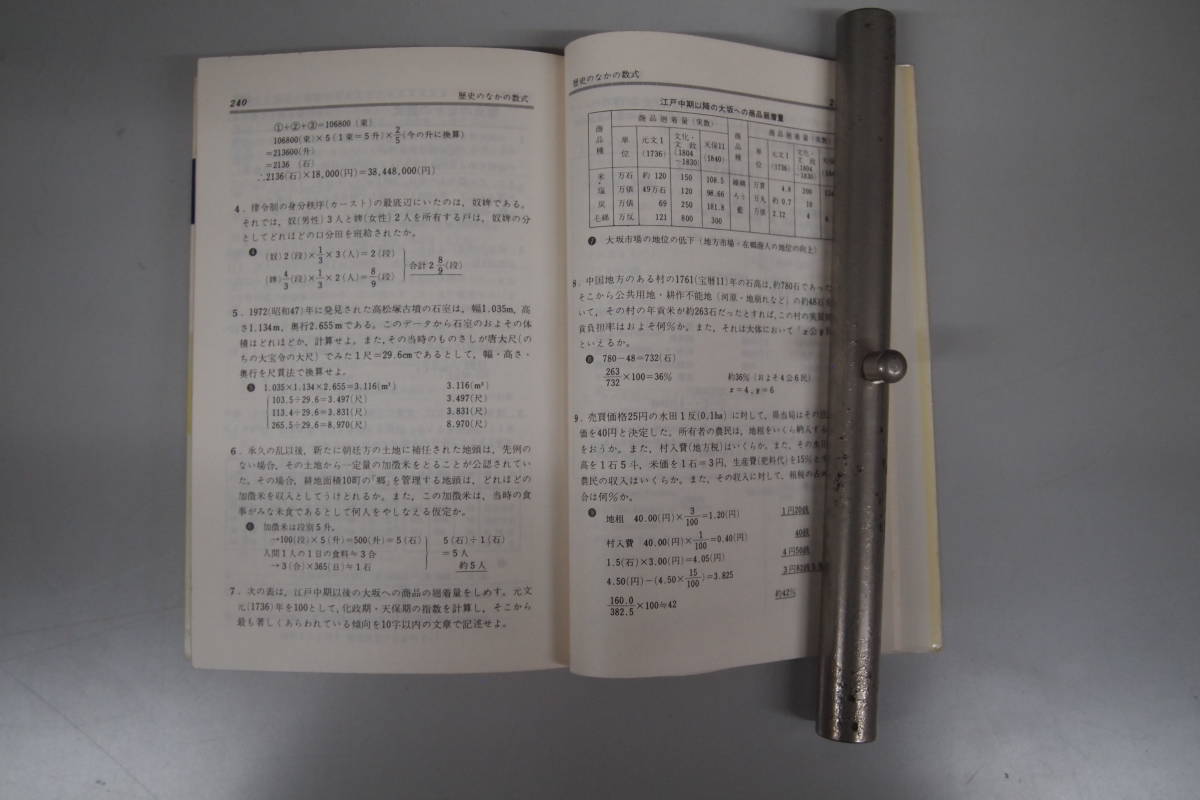 240
歴史のなかの数式
①+②+③=106800 (束)
106800(束)×5(1束=5升)×2/5(今の升に換算)
=213600(升)
=2136 (石)
∴2136(石)×18,000(円)=38,448,000(円)
4. 律令制の身分秩序(カースト)の最底辺にいたのは,奴婢である。
それでは,奴(男性)3人と婢(女性)2人を所有する戸は,奴婢の分
としてどれほどの口分田を班給されたか。
❹ (奴)2(段)×1/3×3(人)=2(段)
(婢)4/3(段)×1/3×2(人)=8/9(段)
合計2 8/9(段)
5. 1972(昭和47)年に発見された高松塚古墳の石室は,幅1.035m,高
さ1.134m,奥行2.655mである。このデータから石室のおよその体
積はどれほどか,計算せよ。また,その当時のものさしが唐大尺(の
ちの大宝令の大尺)でみた1尺=29.6cmであるとして,幅・高さ・
奥行を尺貫法で換算せよ。
❺ 1.035×1.134×2.655=3.116(m³) 3.116(m³)
103.5÷29.6=3.497(尺) 3.497(尺)
113.4÷29.6=3.831(尺) 3.831(尺)
265.5÷29.6=8.970(尺) 8.970(尺)
6. 承久の乱以後,新たに朝廷方の土地に補任された地頭は,先例の
ない場合,その土地から一定量の加徴米をとることが公認されてい
た。その場合,耕地面積10町の「郷」を管理する地頭は,どれほどの
加徴米を収入としてうけとれるか。また,この加徴米は,当時の食
事がみな米食であるとして何人をやしなえる仮定か。
❻ 加徴米は段別5升,
→100(段)×5(升)=500(升)=5(石)
人間1人の1日の食料≒3合
→3(合)×365(日)≒1石
5(石)÷1(石)
=5人
約5人
7. 次の表は,江戸中期以後の大坂への商品の廻着量をしめす。元文
元(1736)年を100として,化政期・天保期の指数を計算し,そこから
最も著しくあらわれている傾向を10字以内の文章で記述せよ。
歴史のなかの数式
2
江戸中期以降の大坂への商品廻着量
商品種 単位 商品廻着量(実数) 商品種 単位 商品廻着量(実数)
元文1(1736) 文化・文政(1804~1830) 天保11(1840) 元文1(1736) 文化・文政(1804~1830)
米 万石 約120 150 108.5 繰綿 万貫 4.8 200
塩 万俵 49万石 120 98.66 ろう 万丸 約0.7 10
炭 万俵 69 250 181.8 藍 万俵 2.12 4
毛綿 万反 121 800 300
❼ 大坂市場の地位の低下(地方市場・在郷商人の地位の向上)
8. 中国地方のある村の1761(宝暦11)年の石高は,約780石であった
そこから公共用地・耕作不能地(河原・地崩れなど)の約48石
いて,その村の年貢米が約263石だったとすれば,この村の実質
貢負担率はおよそ何%か。また,それは大体において「x公y
といえるか。
❽ 780-48=732(石)
263/732×100=36% 約36% (およそ4公6民)
x=4,y=6
9. 売買価格25円の水田1反(0.1ha)に対して,県当局はその
価を40円と決定した。所有者の農民は,地租をいくら納入する
をおうか。また,村入費(地方税)はいくらか。また,その水田
高を1石5斗,米価を1石=3円,生産費(肥料代)を15%と
農民の収入はいくらか。また,その収入に対して,租税の占め
合は何%か。
❾ 地租 40.00(円)×3/100=1.20(円) 1円20銭
村入費 40.00(円)×1/100=0.40(円) 40銭
1.5(石)×3.00(円)=4.05(円) 4円50銭
4.50(円)-(4.50×15/100)=3.825 3円82銭
160.0/382.5×100≒42 約42%